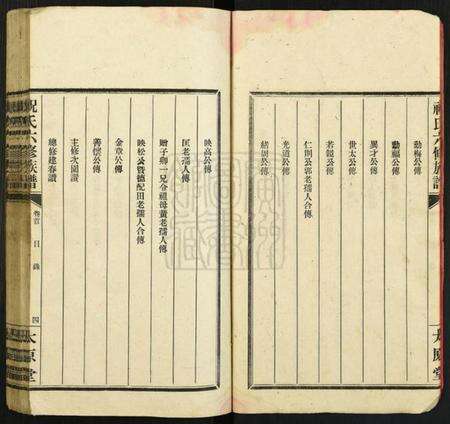 祝氏六修族譜
動梅公傳
動福公傳
異才公傳
世太公傳
若韜公傳
仁則公郭老孺人合傳
光道公傳
緒周公傳
太原堂
映高公傳
匡老孺人傳
贈子卿一兄令祖母黃老孺人傳
映松公暨德配田老孺人合傳
金章公傳
善懷公傳
主修次園讚
總修建春讚
祝氏六修族譜
卷首
目錄
四
太原堂